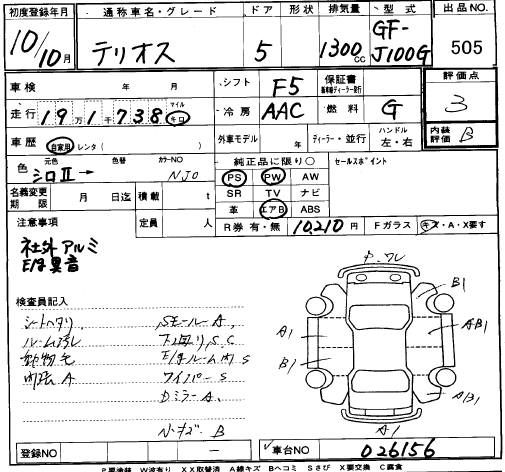 初度登録年月 通称車名・グレード ドア 形状 排気量 型式 出品NO.
10年10月 テリオス 5 1300cc GF-J100G 505
車検 年 月 シフト F5 保証書 評価点
走行 19万1千738 マイル キロ 冷房 AAC 燃料 G 3
車歴 自家用 レンタ ( ) 外車モデル 年 ディーラー・並行 ハンドル 左・右 内装評価 B
色 元色 色替 カラーNO 純正品に限り○ セールスポイント
シロⅡ → NJ0 PS PW AW
名義変更期限 月 日迄 積載 t SR TV ナビ
定員 人 革 エアB ABS
注意事項 R券 有・無 10,210円 Fガラス キズ・A・X要す
社外アルミ
E/g異音
P.ワレ
B1
A1
AB1
B1
AB1
A1
検査員記入
シートヘタリ、 Sモール-A、
ルーム汚レ 下回り、S.C
動物毛 E/gルーム内S
内張A ワイパーS
DミラーA、
B
登録NO ー 車台NO 026156
P要塗装 W波有り XX取替済 A線キズ Bヘコミ Sさび X要交換 C腐食